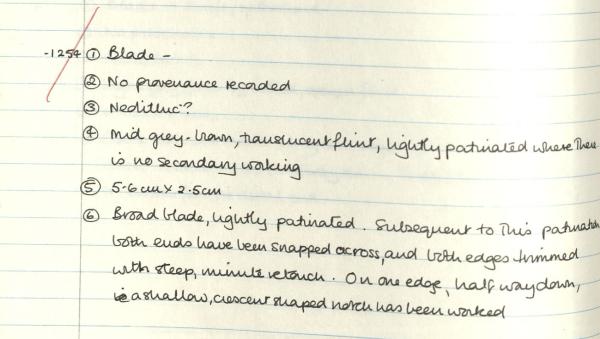 -1254 ① Blade -
② No provenance recorded
③ Neolithic?
④ Mid grey-brown, translucent flint, lightly patinated where there
is no secondary working
⑤ 5.6cm x 2.5cm
⑥ Broad blade, lightly patinated. Subsequent to this patination
both ends have been snapped across, and both edges trimmed
with steep, minute retouch. On one edge, half way down,
a shallow, crescent shaped notch has been worked